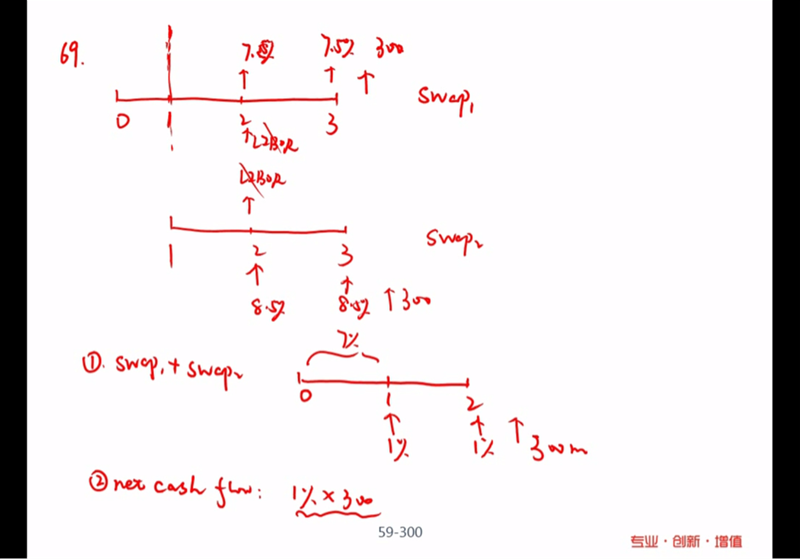 69.
7.5% 7.5% 300
0 1 2 3 swap₁
LIBOR
LIBOR
1 2 3 swap₂
8.5% 8.5% 300
① swap₁ + swap₂ 7%
0 1 2
1% 1% 300m
② net cash flow: 1% × 300
59-300
专业·创新·增值